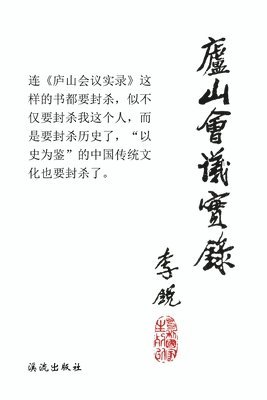 连《庐山会议实录》这
样的书都要封杀，似不
仅要封杀我这个人，而
是要封杀历史了，“以
史为鉴”的中国传统文
化也要封杀了。
廬山會議實錄
李锐
溪流出版社